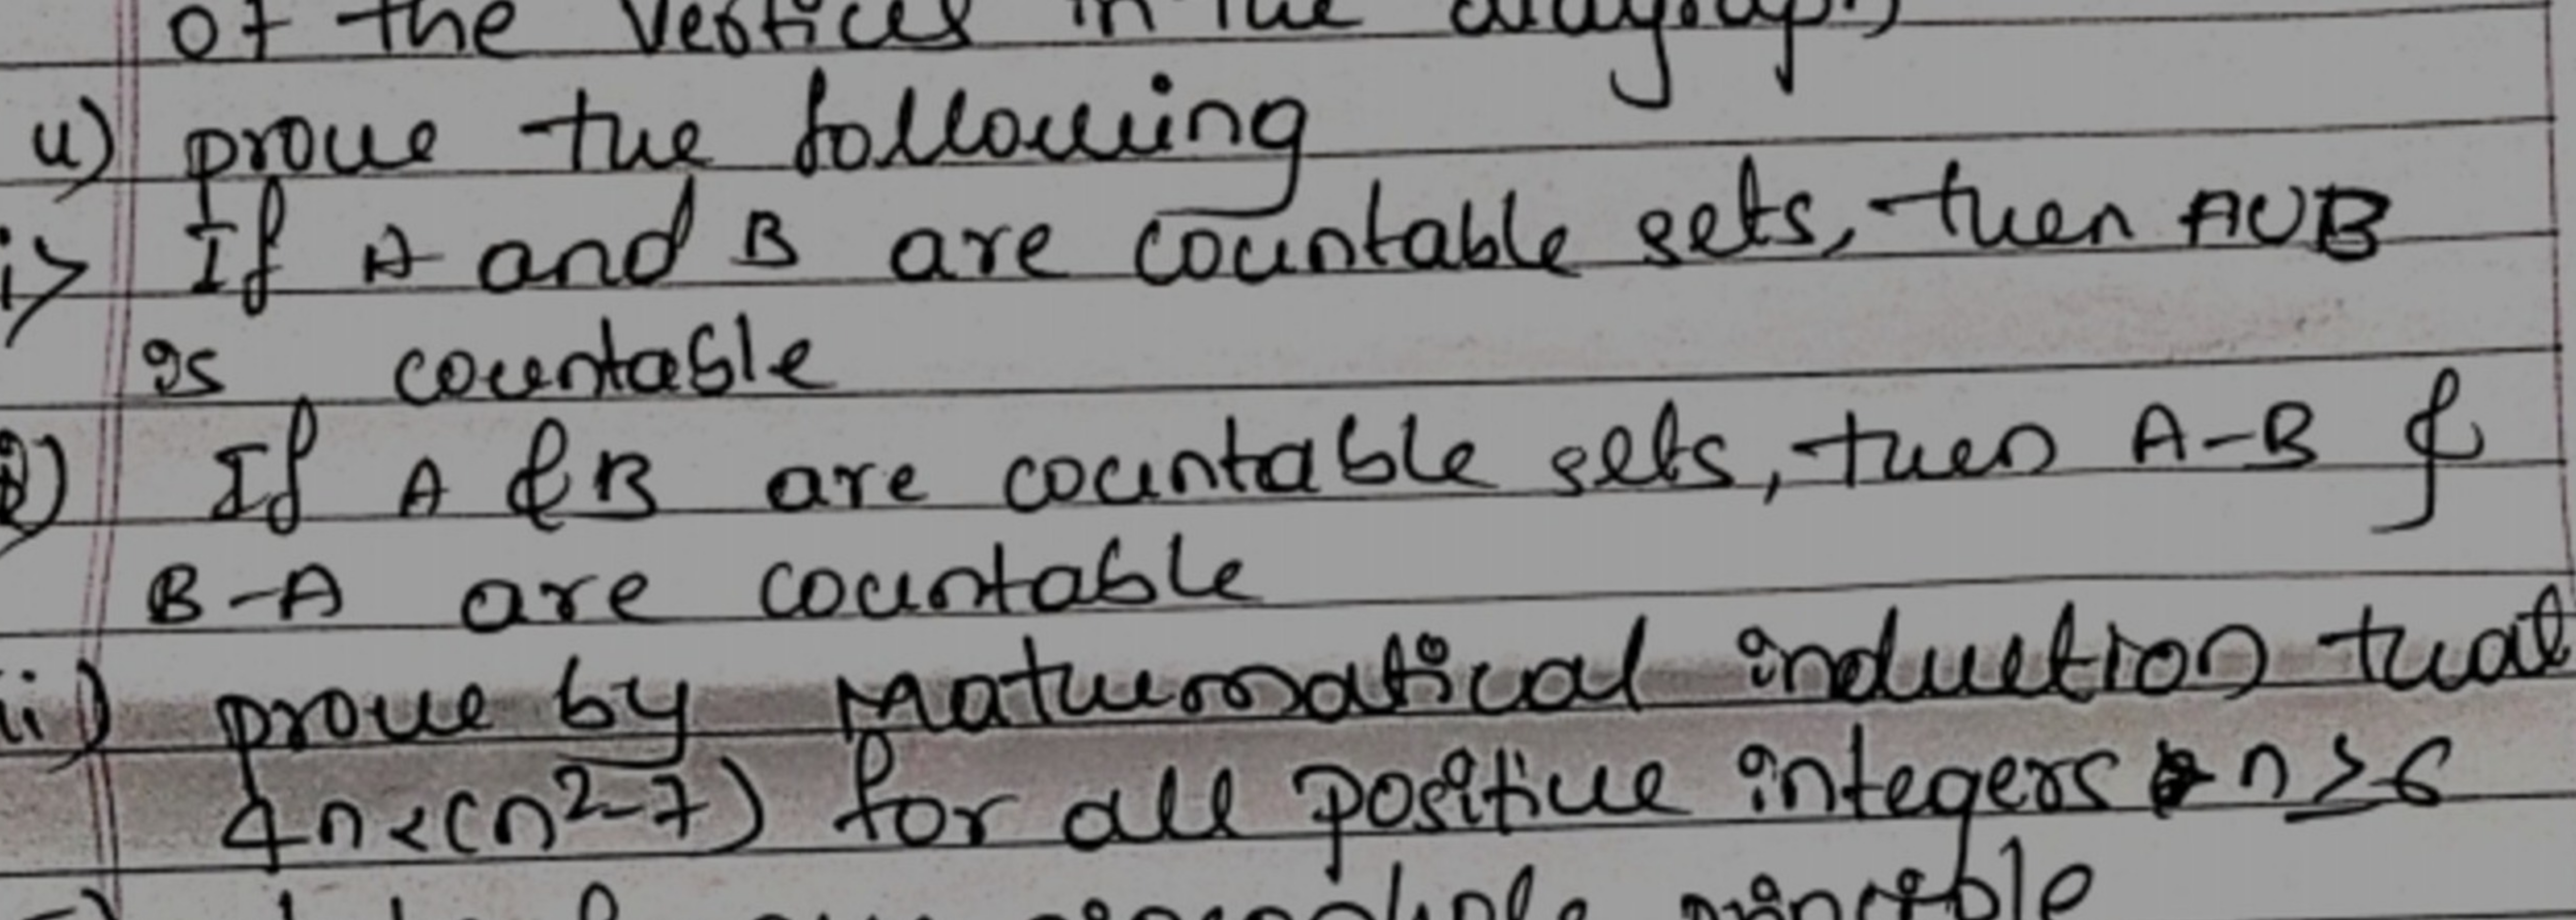 of the vertices in the
4) prove the following
i> If A and B are countable sets, then AUB
is countable
If A & B are countable sets, then A-B &
B-A are countable
ii) prove by Mathematical induction that
4n<(n²-7) for all positive integers n≥6
principle